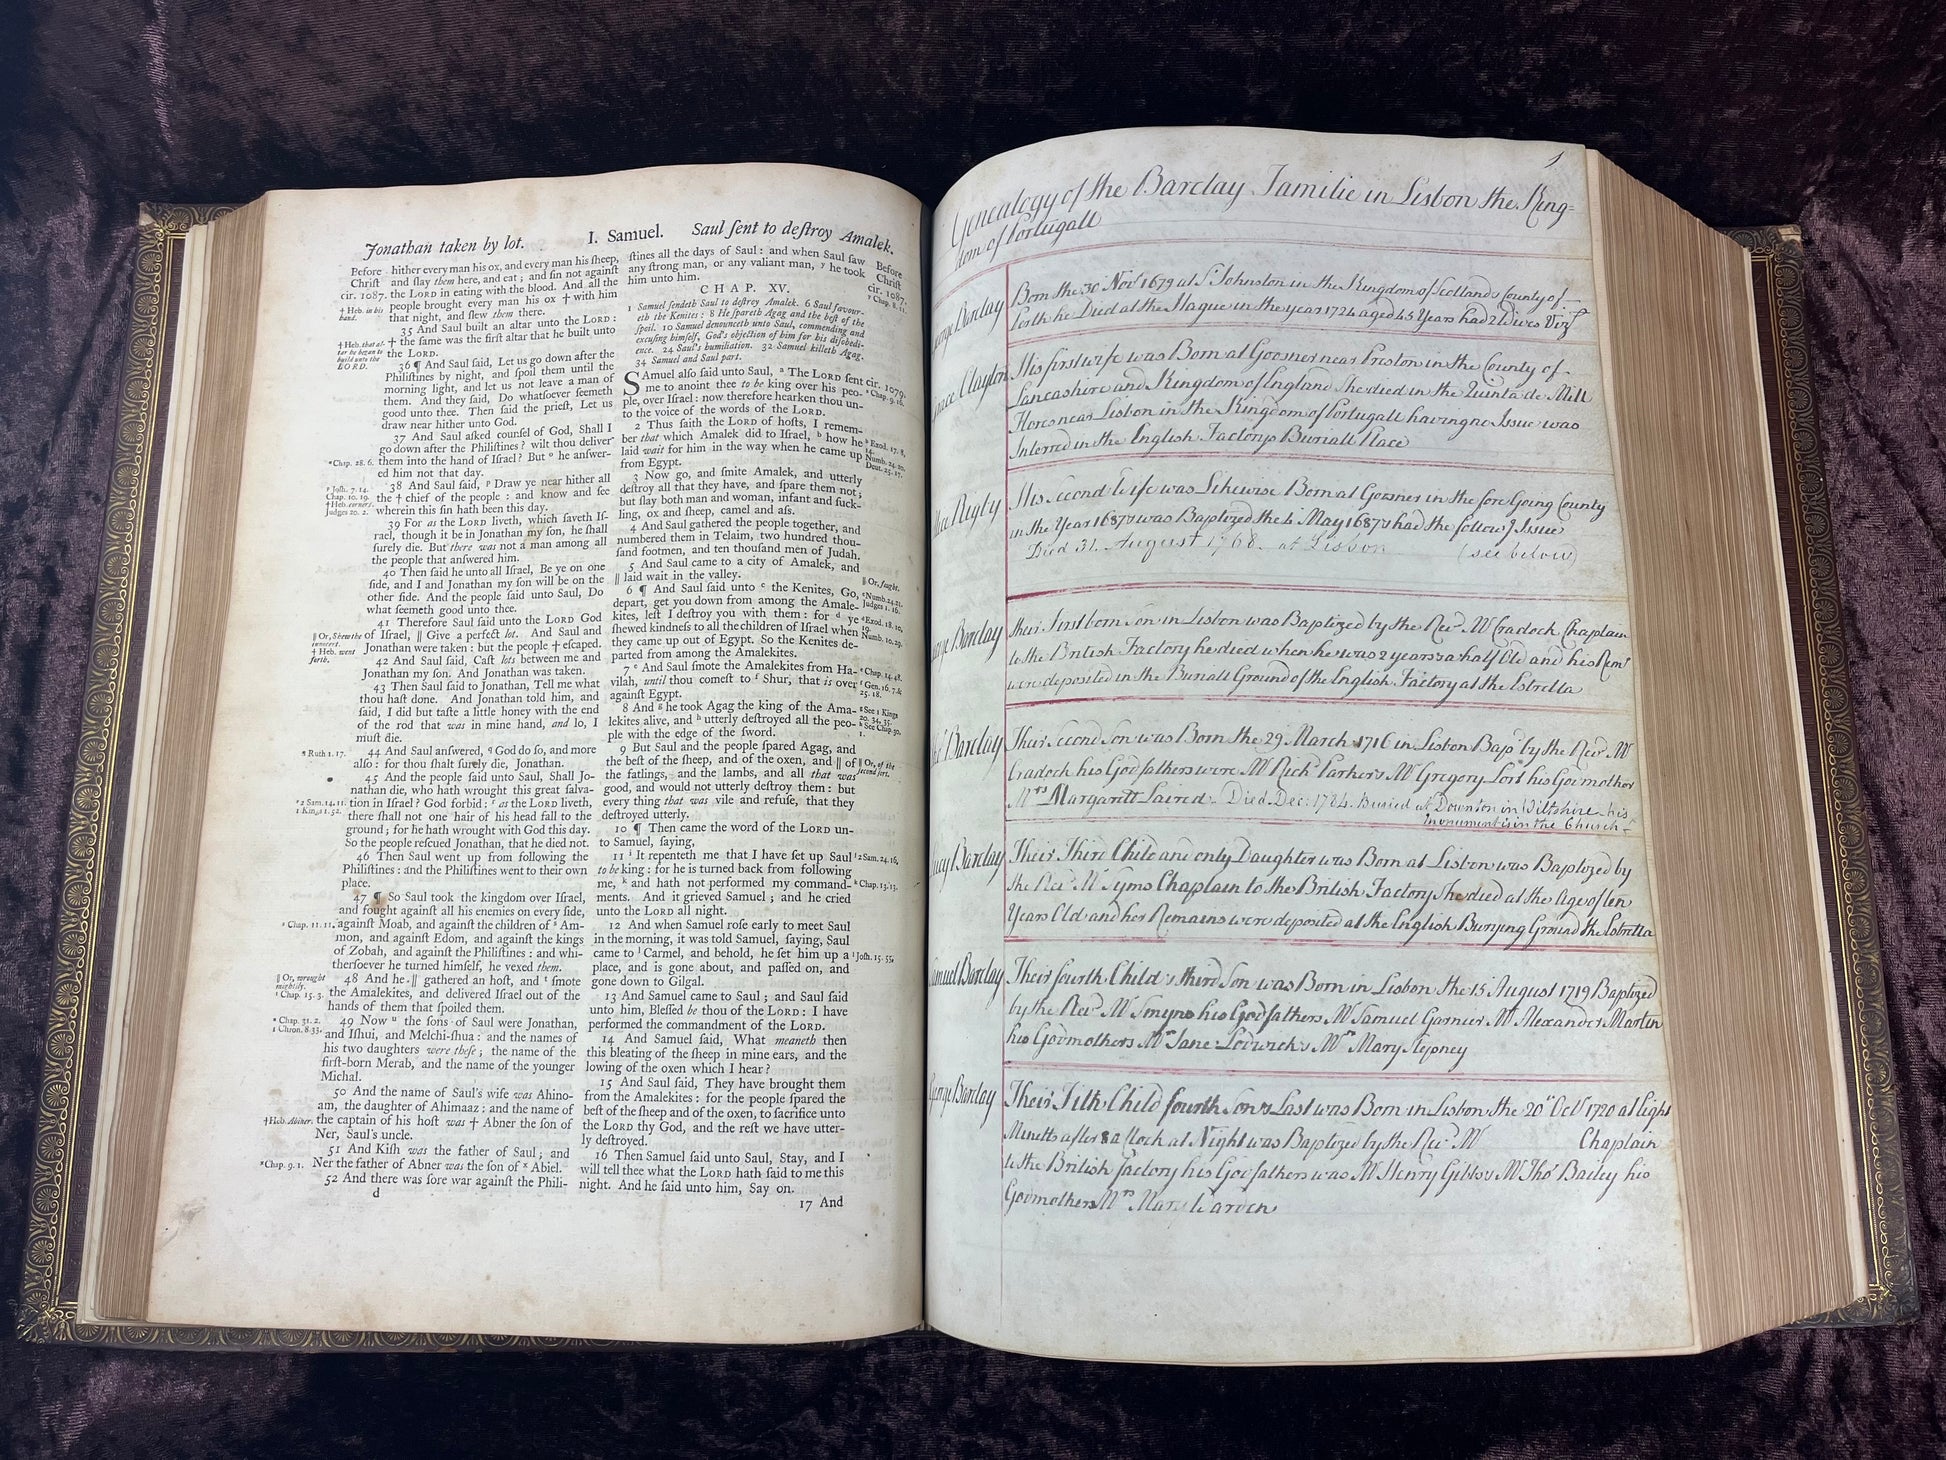 Jonathan taken by lot.
I. Samuel.
Saul ſent to deſtroy Amalek.
Before
Chriſt
cir. 1087.
† Heb. in his
hand.
† Heb. that al-
tar he began to
build unto the
LORD.
hither every man his ox, and every man his ſheep,
and ſlay them here, and eat; and ſin not againſt
the LORD in eating with the blood. And all the
people brought every man his ox † with him
that night, and ſlew them there.
35 And Saul built an altar unto the LORD:
† the ſame was the firſt altar that he built unto
the LORD.
36 ¶ And Saul ſaid, Let us go down after the
Philiſtines by night, and ſpoil them until the
morning light, and let us not leave a man of
them. And they ſaid, Do whatſoever ſeemeth
good unto thee. Then ſaid the prieſt, Let us
draw near hither unto God.
37 And Saul asked counſel of God, Shall I
go down after the Philiſtines? wilt thou deliver
* Chap. 28. 6.
them into the hand of Iſrael? But º he anſwer-
ed him not that day.
38 And Saul ſaid, ᵖ Draw ye near hither all
ᵖ Joſh. 7. 14.
Chap. 10. 19.
† Heb. corners.
Judges 20. 2.
the † chief of the people: and know and ſee
wherein this ſin hath been this day.
39 For as the LORD liveth, which ſaveth Iſ-
rael, though it be in Jonathan my ſon, he ſhall
ſurely die. But there was not a man among all
the people that anſwered him.
40 Then ſaid he unto all Iſrael, Be ye on one
ſide, and I and Jonathan my ſon will be on the
other ſide. And the people ſaid unto Saul, Do
what ſeemeth good unto thee.
41 Therefore Saul ſaid unto the LORD God
|| Or, Shew the
innocent.
† Heb. went
forth.
of Iſrael, || Give a perfect lot. And Saul and
Jonathan were taken: but the people † eſcaped.
42 And Saul ſaid, Caſt lots between me and
Jonathan my ſon. And Jonathan was taken.
43 Then Saul ſaid to Jonathan, Tell me what
thou haſt done. And Jonathan told him, and
ſaid, I did but taſte a little honey with the end
of the rod that was in mine hand, and lo, I
muſt die.
ᑫ Ruth 1. 17.
44 And Saul anſwered, ᑫ God do ſo, and more
alſo: for thou ſhalt ſurely die, Jonathan.
45 And the people ſaid unto Saul, Shall Jo-
nathan die, who hath wrought this great ſalva-
* 2 Sam. 14. 11.
1 Kings 1. 52.
tion in Iſrael? God forbid: ʳ as the LORD liveth,
there ſhall not one hair of his head fall to the
ground; for he hath wrought with God this day.
So the people reſcued Jonathan, that he died not.
46 Then Saul went up from following the
Philiſtines: and the Philiſtines went to their own
place.
47 ¶ So Saul took the kingdom over Iſrael,
and fought againſt all his enemies on every ſide,
ˢ Chap. 11. 11.
againſt Moab, and againſt the children of ˢ Am-
mon, and againſt Edom, and againſt the kings
of Zobah, and againſt the Philiſtines: and whi-
therſoever he turned himſelf, he vexed them.
|| Or, wrought
mightily.
ᵗ Chap. 15. 3.
48 And he || gathered an hoſt, and ᵗ ſmote
the Amalekites, and delivered Iſrael out of the
hands of them that ſpoiled them.
ᵘ Chap. 31. 2.
1 Chron. 8. 33.
49 Now ᵘ the ſons of Saul were Jonathan,
and Iſhui, and Melchi-ſhua: and the names of
his two daughters were theſe; the name of the
firſt-born Merab, and the name of the younger
Michal.
50 And the name of Saul's wife was Ahino-
am, the daughter of Ahimaaz: and the name of
† Heb. Abiner.
the captain of his hoſt was † Abner the ſon of
Ner, Saul's uncle.
51 And Kiſh was the father of Saul; and
ˣ Chap. 9. 1.
Ner the father of Abner was the ſon of ˣ Abiel.
52 And there was ſore war againſt the Phili-
d
ſtines all the days of Saul: and when Saul ſaw
any ſtrong man, or any valiant man, ʸ he took
him unto him.
Before
Chriſt
cir. 1087.
ʸ Chap. 8. 11.
CHAP. XV.
1 Samuel ſendeth Saul to deſtroy Amalek. 6 Saul favour-
eth the Kenites: 8 He ſpareth Agag and the beſt of the
ſpoil. 10 Samuel denounceth unto Saul, commending and
excuſing himſelf, God's objection of him for his diſobedi-
ence. 24 Saul's humiliation. 32 Samuel killeth Agag.
34 Samuel and Saul part.
Samuel alſo ſaid unto Saul, ᵃ The LORD ſent
me to anoint thee to be king over his peo-
cir. 1079.
ᵃ Chap. 9. 16.
ple, over Iſrael: now therefore hearken thou un-
to the voice of the words of the LORD.
2 Thus ſaith the LORD of hoſts, I remem-
ber that which Amalek did to Iſrael, ᵇ how he
ᵇ Exod. 17. 8,
14.
Numb. 24. 20.
Deut. 25. 17.
laid wait for him in the way when he came up
from Egypt.
3 Now go, and ſmite Amalek, and utterly
deſtroy all that they have, and ſpare them not;
but ſlay both man and woman, infant and ſuck-
ling, ox and ſheep, camel and aſs.
4 And Saul gathered the people together, and
numbered them in Telaim, two hundred thou-
ſand footmen, and ten thouſand men of Judah.
5 And Saul came to a city of Amalek, and
|| laid wait in the valley.
|| Or, fought.
6 ¶ And Saul ſaid unto ᶜ the Kenites, Go,
ᶜ Numb. 24. 21.
Judges 1. 16.
depart, get you down from among the Amale-
kites, leſt I deſtroy you with them: for ᵈ ye
ᵈ Exod. 18. 10,
19.
Numb. 10. 29.
ſhewed kindneſs to all the children of Iſrael when
they came up out of Egypt. So the Kenites de-
parted from among the Amalekites.
7 ᵉ And Saul ſmote the Amalekites from Ha-
ᵉ Chap. 14. 48.
vilah, until thou comeſt to ᶠ Shur, that is over
ᶠ Gen. 16. 7. &
25. 18.
againſt Egypt.
8 And ᵍ he took Agag the king of the Ama-
ᵍ See 1 Kings
20. 34, 35.
ʰ See Chap. 30.
1.
lekites alive, and ʰ utterly deſtroyed all the peo-
ple with the edge of the ſword.
9 But Saul and the people ſpared Agag, and
the beſt of the ſheep, and of the oxen, and || of
|| Or, of the
ſecond ſort.
the fatlings, and the lambs, and all that was
good, and would not utterly deſtroy them: but
every thing that was vile and refuſe, that they
deſtroyed utterly.
10 ¶ Then came the word of the LORD un-
to Samuel, ſaying,
11 ⁱ It repenteth me that I have ſet up Saul
ⁱ 2 Sam. 24. 16.
to be king: for he is turned back from following
me, ᵏ and hath not performed my command-
ᵏ Chap. 13. 13.
ments. And it grieved Samuel; and he cried
unto the LORD all night.
12 And when Samuel roſe early to meet Saul
in the morning, it was told Samuel, ſaying, Saul
came to ˡ Carmel, and behold, he ſet him up a
ˡ Joſh. 15. 55.
place, and is gone about, and paſſed on, and
gone down to Gilgal.
13 And Samuel came to Saul; and Saul ſaid
unto him, Bleſſed be thou of the LORD: I have
performed the commandment of the LORD.
14 And Samuel ſaid, What meaneth then
this bleating of the ſheep in mine ears, and the
lowing of the oxen which I hear?
15 And Saul ſaid, They have brought them
from the Amalekites: for the people ſpared the
beſt of the ſheep and of the oxen, to ſacrifice unto
the LORD thy God, and the reſt we have utter-
ly deſtroyed.
16 Then Samuel ſaid unto Saul, Stay, and I
will tell thee what the LORD hath ſaid to me this
night. And he ſaid unto him, Say on.
17 And
1
Genealogy of the Barclay Familie in Lisbon the King=
dom of Portugall
George Barclay
Born the 30 Novr 1679 at St Johnston in the Kingdom of Scotland & County of
Perth he Died at the Hague in the year 1724 aged 45 Years had 2 Wives Vizt
Grace Clayton
His first wife was Born at Goosner near Preston in the County of
Lancashire and Kingdom of England she died in the Quinta de Mill
Flores near Lisbon in the Kingdom of Portugall having no Issue was
Interred in the English Factorys Buriall Place
Rigby
His second Wife was Likewise Born at Goosner in the fore Going County
in the Year 1687 & was Baptized the 4 May 1687 & had the followg Issue
Died 31. August 1768. at Lisbon (see below)
Barclay
Their First born Son in Lisbon was Baptized by the Revd Mr Cradock Chaplain
to the British Factory he died when he was 2 years & a half Old and his Rems
were deposited in the Buriall Ground of the English Factory at the Estrella
Barclay
Their Second Son was Born the 29 March 1716 in Lisbon Bapd by the Revd Mr
Cradock his Godfathers were Mr Richd Parker & Mr Gregory Lort his Godmother
Mrs Margarett Laired. Died Dec: 1784. Buried at Downton in Wiltshire - his
monument is in the Church -
Lucy Barclay
Their Third Child and only Daughter was Born at Lisbon was Baptized by
the Revd Mr Syms Chaplain to the British Factory She died at the Age of ten
Years Old and her Remains were deposited at the English Burying Ground the Estrella
Samuel Barclay
Their fourth Child & third Son was Born in Lisbon the 15 August 1719 Baptized
by the Revd Mr his Godfathers Mr Samuel Garnier Mr Alexander Martin
his Godmothers Mrs Jane Lodwick & Mrs Mary Stepney
George Barclay
Their Fifth Child fourth Son & Last was Born in Lisbon the 20th Octr 1720 at Eight
Minetts after 8 a Clock at Night was Baptized by the Revd Mr Chaplain
to the British Factory his Godfathers was Mr Henry Gibbs & Mr Thos Bailey his
Godmothers Mrs Mary Warden